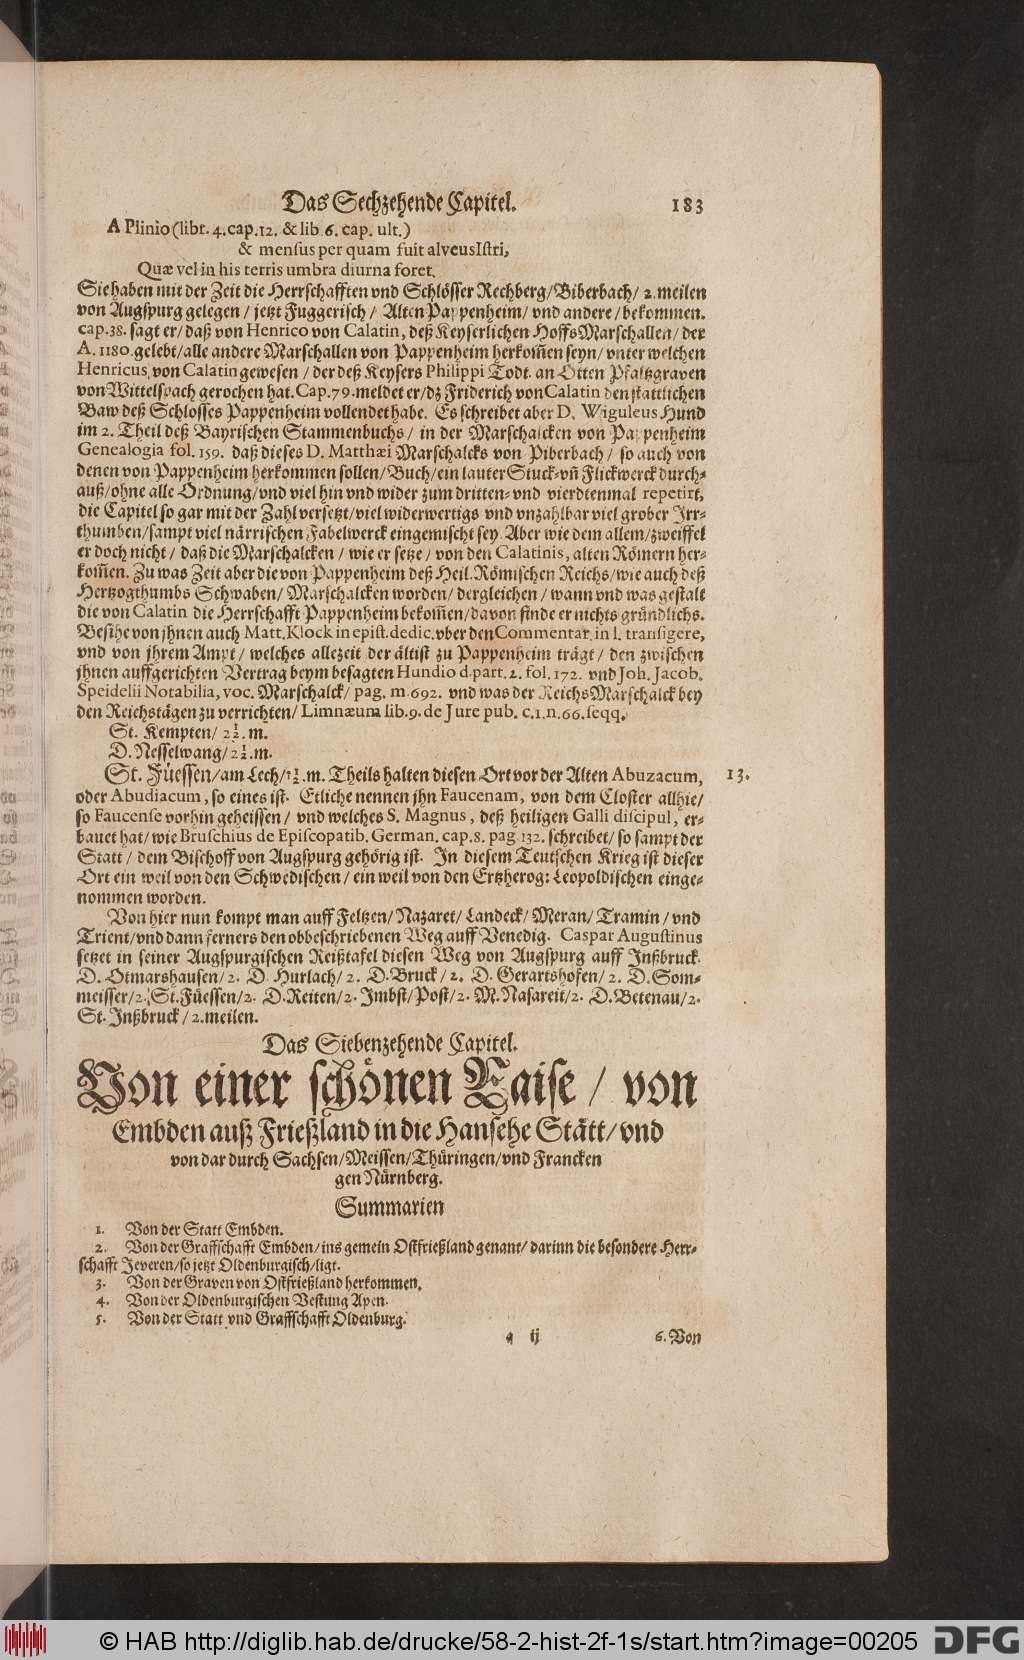 Das Sechzehende Capitel. 183
A Plinio (libr. 4. cap. 12. & lib 6. cap. ult.)
& mensus per quam fuit alveus Istri,
Quæ vel in his terris umbra diurna foret.
Sie haben mit der Zeit die Herrschafften vnd Schlösser Rechberg/ Biberbach/ 2. meilen
von Augspurg gelegen / jetzt Fuggerisch / Alten Pappenheim/ vnd andere / bekommen.
cap. 38. sagt er/ daß von Henrico von Calatin, deß Keyserlichen Hoffs Marschallen/ der
A. 1180. gelebt/ alle andere Marschallen von Pappenheim herkom̃en seyn/ vnter welchen
Henricus von Calatin gewesen / der deß Keysers Philippi Todt an Otten Pfaltzgraven
von Wittelspach gerochen hat. Cap. 79. meldet er/ dz Friderich von Calatin den stattlichen
Baw deß Schlosses Pappenheim vollendet habe. Es schreibet aber D. Wiguleus Hund
im 2. Theil deß Bayrischen Stammenbuchs/ in der Marschalcken von Pappenheim
Genealogia fol. 159. daß dieses D. Matthæi Marschalcks von Piberbach / so auch von
denen von Pappenheim herkommen sollen/ Buch/ ein lauter Stuck- vñ Flickwerck durch-
auß/ ohne alle Ordnung/ vnd viel hin vnd wider zum dritten- vnd vierdtenmal repetirt,
die Capitel so gar mit der Zahl versetzt/ viel widerwertigs vnd vnzahlbar viel grober Irr-
thumben/ sampt viel närrischen Fabelwerck eingemischt sey. Aber wie dem allem/ zweiffel
er doch nicht / daß die Marschalcken / wie er setze / von den Calatinis, alten Römern her-
kom̃en. Zu was Zeit aber die von Pappenheim deß Heil. Römischen Reichs/ wie auch deß
Hertzogthumbs Schwaben/ Marschalcken worden/ dergleichen / wann vnd was gestalt
die von Calatin die Herrschafft Pappenheim bekom̃en/ davon finde er nichts gründlichs.
Besihe von jhnen auch Matt. Klock in epist. dedic. vber den Commentar. in l. transigere,
vnd von jhrem Ampt / welches allezeit der ältist zu Pappenheim trägt / den zwischen
jhnen auffgerichten Vertrag beym besagten Hundio d. part. 2. fol. 172. vnd Joh. Jacob.
Speidelii Notabilia, voc. Marschalck/ pag. m. 692. vnd was der Reichs Marschalck bey
den Reichstägen zu verrichten/ Limnæum lib. 9. de Jure pub. c. 1. n. 66. seqq.
St. Kempten/ 2½. m.
D. Nesselwang/ 2½. m.
St. Füessen/ am Lech/ 1½. m. Theils halten diesen Ort vor der Alten Abuzacum, 13.
oder Abudiacum, so eines ist. Etliche nennen jhn Faucenam, von dem Closter allhie/
so Faucense vorhin geheissen / vnd welches S. Magnus, deß heiligen Galli discipul, er-
bauet hat/ wie Bruschius de Episcopatib. German. cap. 8. pag. 132. schreibet/ so sampt der
Statt / dem Bischoff von Augspurg gehörig ist. In diesem Teutschen Krieg ist dieser
Ort ein weil von den Schwedischen / ein weil von den Ertzherog: Leopoldischen einge-
nommen worden.
Von hier nun kompt man auff Feltzen/ Nazaret/ Landeck/ Meran/ Tramin / vnd
Trient/ vnd dann ferners den obbeschriebenen Weg auff Venedig. Caspar Augustinus
setzet in seiner Augspurgischen Reißtafel diesen Weg von Augspurg auff Inßbruck.
D. Otmarshausen/ 2. D. Hurlach/ 2. D. Bruck/ 2. D. Gerartshofen/ 2. D. Som-
meisser/ 2. St. Füessen/ 2. D. Reiten/ 2. Imbst/ Post/ 2. M. Nasareit/ 2. D. Betenau/ 2.
St. Inßbruck/ 2. meilen.
Das Siebenzehende Capitel.
Von einer schönen Raise / von
Embden auß Frießland in die Hansehe Stätt/ vnd
von dar durch Sachsen/ Meissen/ Thüringen/ vnd Francken
gen Nürnberg.
Summarien
1. Von der Statt Embden.
2. Von der Graffschafft Embden/ ins gemein Ostfrießland genant/ darinn die besondere Herr-
schafft Jeveren/ so jetzt Oldenburgisch/ ligt.
3. Von der Graven von Ostfrießland herkommen.
4. Von der Oldenburgischen Vestung Apen.
5. Von der Statt vnd Graffschafft Oldenburg.
q ij 6. Von
© HAB http://diglib.hab.de/drucke/58-2-hist-2f-1s/start.htm?image=00205 DFG